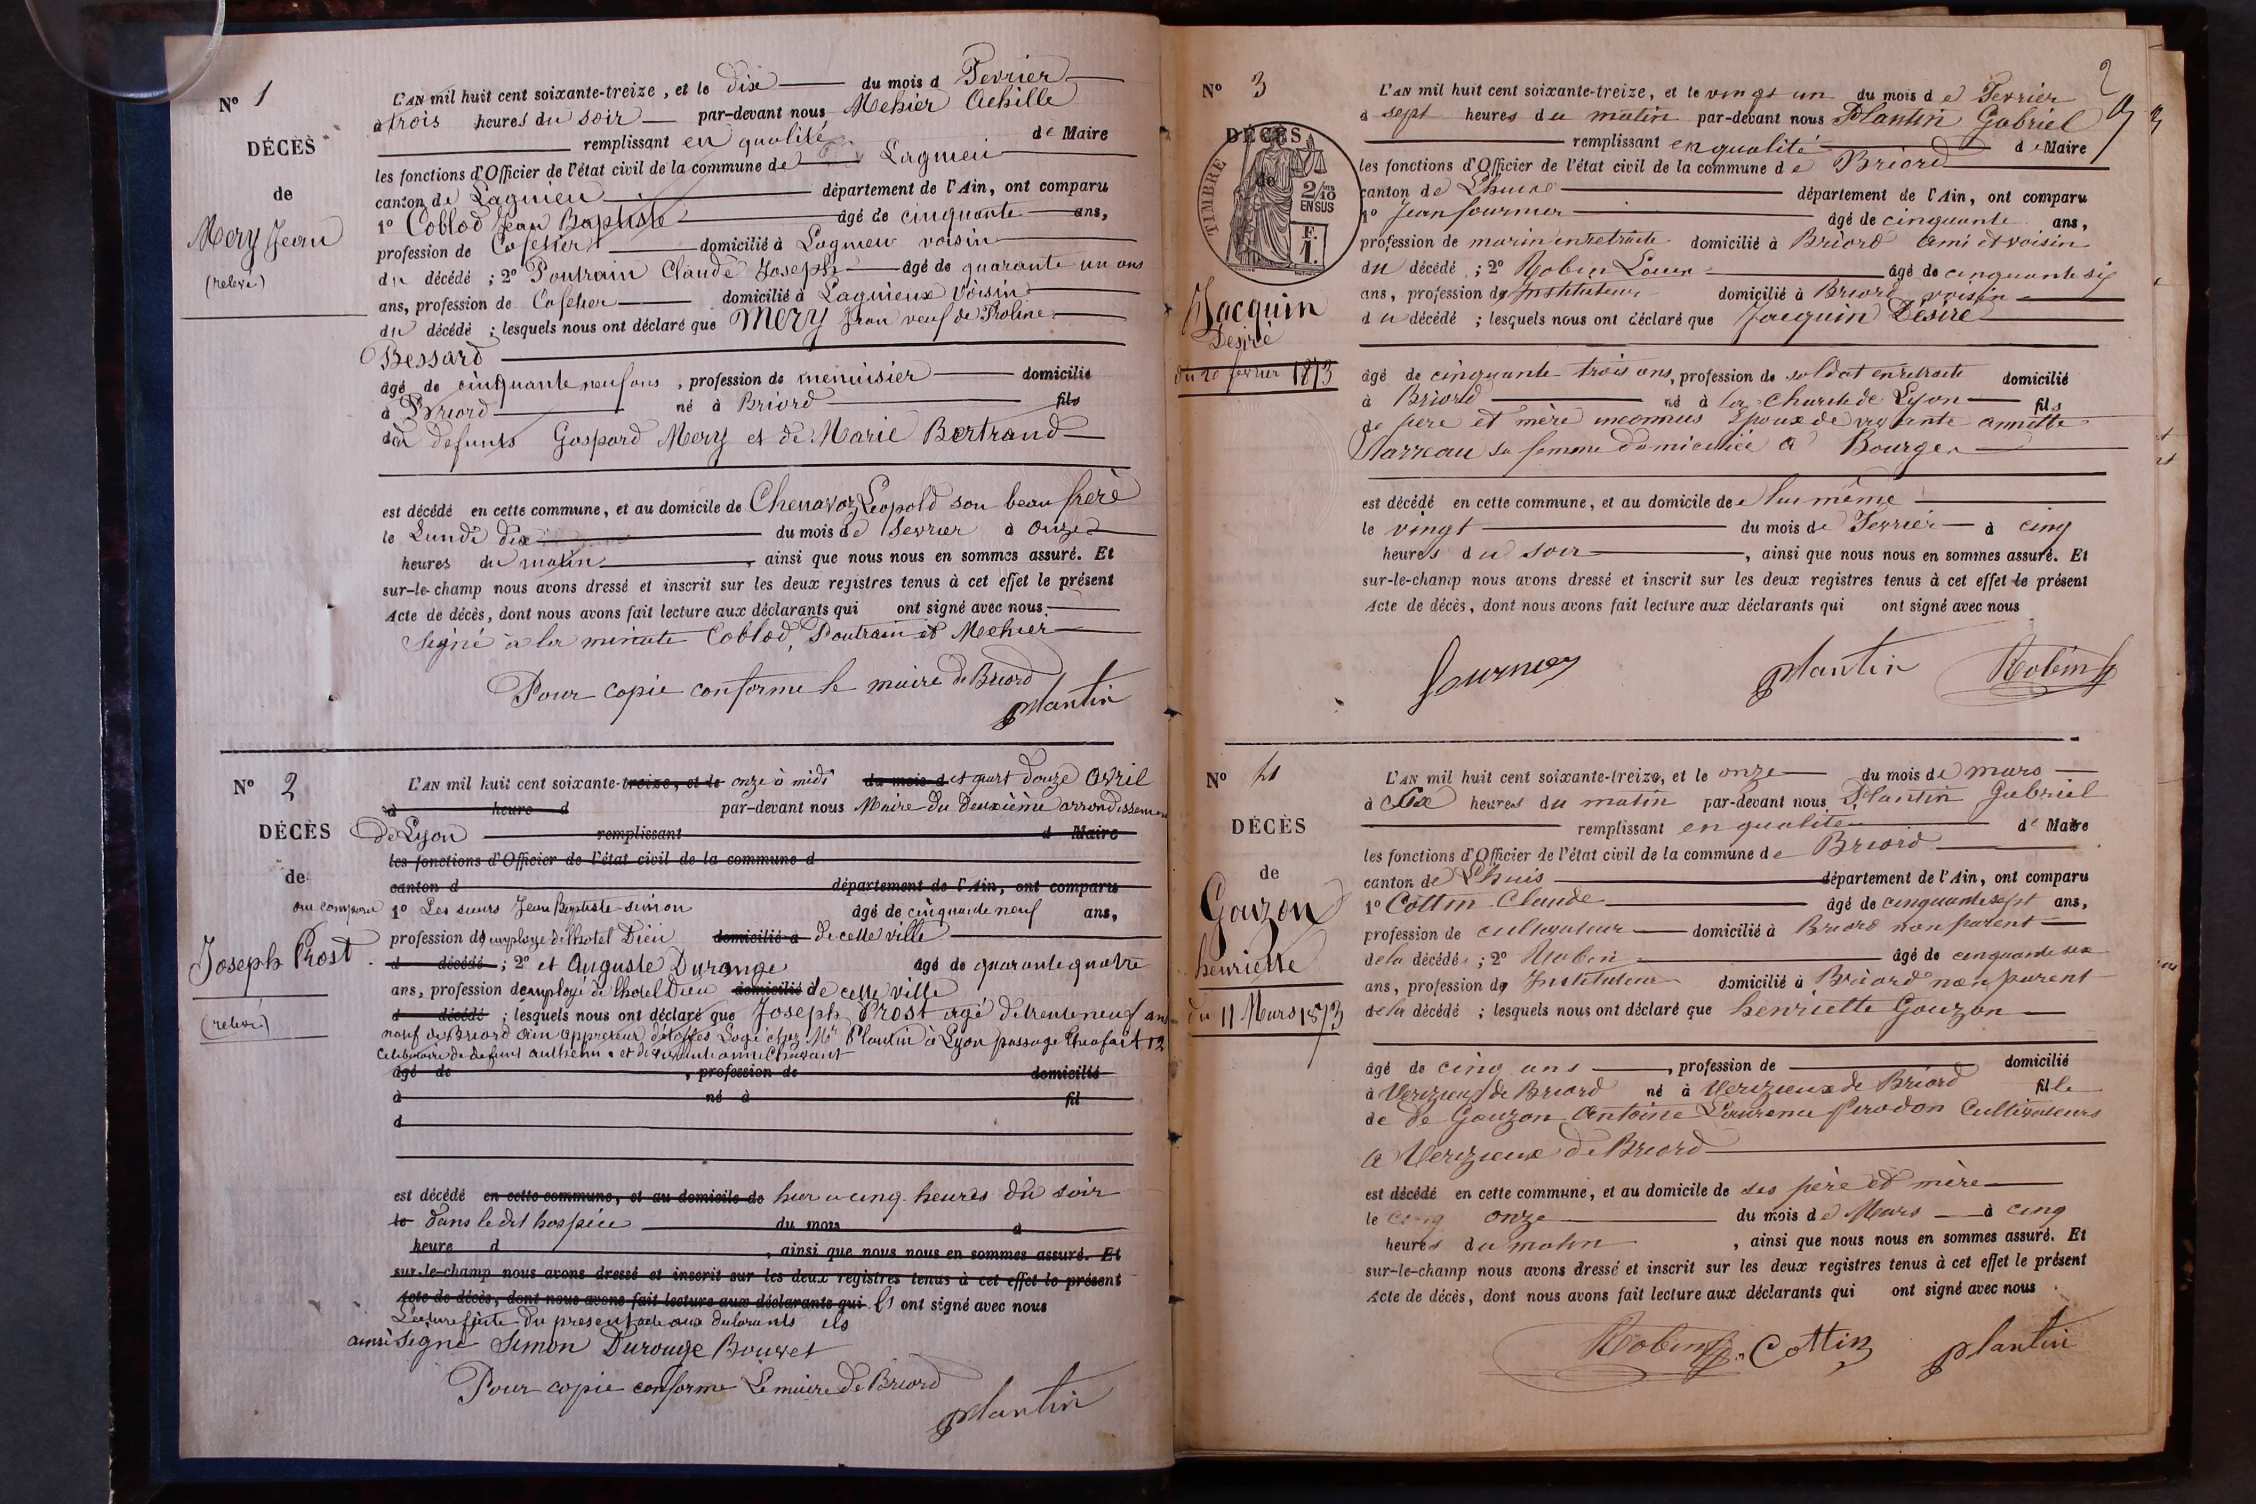 N° 1
DÉCÈS
de
Mery Jean
(relevé)
L'AN mil huit cent soixante-treize, et le dix du mois d Fevrier
à trois heures du soir par-devant nous Mehier Achille
remplissant en qualité de Maire
les fonctions d'Officier de l'état civil de la commune de Lagnieu
canton de Lagnieu département de l'Ain, ont comparu
1° Coblod Jean Baptiste âgé de cinquante ans,
profession de Cafetier domicilié à Lagnieu voisin
du décédé ; 2° Poutrain Claude Joseph âgé de quarante un ans
ans, profession de Cafetier domicilié à Lagnieux Voisin
du décédé ; lesquels nous ont déclaré que Mery Jean veuf de Proline
Bessard
âgé de cinquante neuf ans, profession de menuisier domicilié
à Briord né à Briord fils
de defunts Gaspard Mery et de Marie Bertrand
est décédé en cette commune, et au domicile de Chenavoz Leopold son beau frere
le Lundi dix du mois de Fevrier à onze
heures du matin, ainsi que nous nous en sommes assuré. Et
sur-le-champ nous avons dressé et inscrit sur les deux registres tenus à cet effet le présent
Acte de décès, dont nous avons fait lecture aux déclarants qui ont signé avec nous.
Signé à la minute Coblod, Poutrain et Mehier
Pour copie conforme le maire de Briord
Plantin
N° 2
DÉCÈS
de
Joseph Prost
(relevé)
L'AN mil huit cent soixante-treize, et le onze à midi du mois d et quart douze Avril
à heure d par-devant nous Maire du deuxième arrondissement
de Lyon remplissant d Maire
les fonctions d'Officier de l'état civil de la commune d
canton d département de l'Ain, ont comparu
ont comparu 1° Les sieurs Jean Baptiste Simon âgé de cinquante neuf ans,
profession de employé de lhotel Dieu domicilié à de cette ville
d décédé ; 2° et Auguste Durouge âgé de quarante quatre
ans, profession d employé de lhotel Dieu domicilié de cette ville
d décédé ; lesquels nous ont déclaré que Joseph Prost agé de trente neuf ans
natif de Briord Ain appreteur d'étoffes Logé chez Mr Plantin à Lyon passage 12
Celibataire de defunt et de vivante anne
âgé de, profession de domicilié
à né à fil
d
est décédé en cette commune, et au domicile de hier a cinq heures du soir
le dans le dit hospice du mois à
heure d, ainsi que nous nous en sommes assuré. Et
sur-le-champ nous avons dressé et inscrit sur les deux registres tenus à cet effet le présent
Acte de décès, dont nous avons fait lecture aux déclarants qui ont signé avec nous
Lecture faite du present acte aux declarants ils
ainsi Signé Simon Durouge Bouvet
Pour copie conforme Le maire de Briord
Plantin
2
N° 3
DÉCÈS
de
TIMBRE
2/10 EN SUS
F. 1.
Jacquin
Desiré
du 20 fevrier 1873
L'AN mil huit cent soixante-treize, et le vingt un du mois de Fevrier
à sept heures du matin par-devant nous Plantin Gabriel
remplissant en qualité de Maire
les fonctions d'Officier de l'état civil de la commune de Briord
canton de Lhuis département de l'Ain, ont comparu
1° Jean fournier âgé de cinquante ans,
profession de marin en retraite domicilié à Briord ami et voisin
du décédé ; 2° Robin Louis âgé de cinquante six
ans, profession de Instituteur domicilié à Briord voisin
du décédé ; lesquels nous ont déclaré que Jacquin Desiré
âgé de cinquante trois ans, profession de soldat en retraite domicilié
à Briord né à la Charité de Lyon fils
de pere et mère inconnus Epoux de vivante annette
sa femme domiciliée à Bourges
est décédé en cette commune, et au domicile de lui même
le vingt du mois de Fevrier à cinq
heures du soir, ainsi que nous nous en sommes assuré. Et
sur-le-champ nous avons dressé et inscrit sur les deux registres tenus à cet effet le présent
Acte de décès, dont nous avons fait lecture aux déclarants qui ont signé avec nous
Fournier Plantin Robin
N° 4
DÉCÈS
de
Gouzon
henriette
du 11 Mars 1873
L'AN mil huit cent soixante-treize, et le onze du mois de mars
à dix heures du matin par-devant nous Plantin Gabriel
remplissant en qualité de Maire
les fonctions d'Officier de l'état civil de la commune de Briord
canton de Lhuis département de l'Ain, ont comparu
1° Cottin Claude âgé de cinquante sept ans,
profession de cultivateur domicilié à Briord non parent
de la décédé ; 2° Robin âgé de cinquante six
ans, profession de Instituteur domicilié à Briord non parent
de la décédé ; lesquels nous ont déclaré que henriette Gouzon
âgé de cinq ans, profession de domicilié
à Verizieux de Briord né à Verizieux de Briord fille
de de Gouzon Antoine Laurence Perodon Cultivateurs
a Verizieux de Briord
est décédé en cette commune, et au domicile de ses père et mère
le cinq onze du mois de Mars à cinq
heures du matin, ainsi que nous nous en sommes assuré. Et
sur-le-champ nous avons dressé et inscrit sur les deux registres tenus à cet effet le présent
Acte de décès, dont nous avons fait lecture aux déclarants qui ont signé avec nous
Robin Cottin Plantin